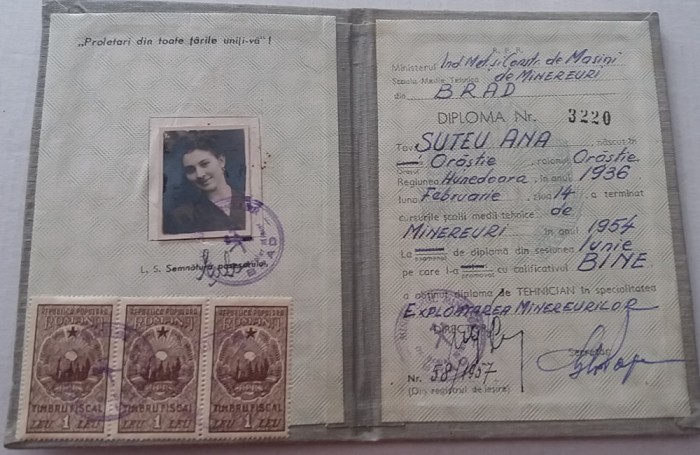 „Proletari din toate țările uniți-vă” !
L. S. Semnătura posesorului
BRAD
REPUBLICA POPULARA
ROMÂNĂ
TIMBRU FISCAL
LEU 1 LEU
REPUBLICA POPULARA
ROMÂNĂ
TIMBRU FISCAL
LEU 1 LEU
REPUBLICA POPULARA
ROMÂNĂ
TIMBRU FISCAL
LEU 1 LEU
R. P. R.
Ministerul Ind. Met. și Constr. de Mașini
Școala Medie Tehnică de MINEREURI
din BRAD
DIPLOMA Nr. 3220
Tov. SUTEU ANA, născut în
Orăștie raionul Orăștie
Regiunea Hunedoara, în anul 1936
luna Februarie ziua 14, a terminat
cursurile școlii medii tehnice de
MINEREURI în anul 1954
La de diplomă din sesiunea Iunie
pe care l-a cu calificativul BINE
a obținut diploma de TEHNICIAN în specialitatea
EXPLOATAREA MINEREURILOR
DIRECTOR,
Secretar,
Nr. 58/1957
(Din registrul de ieșire)